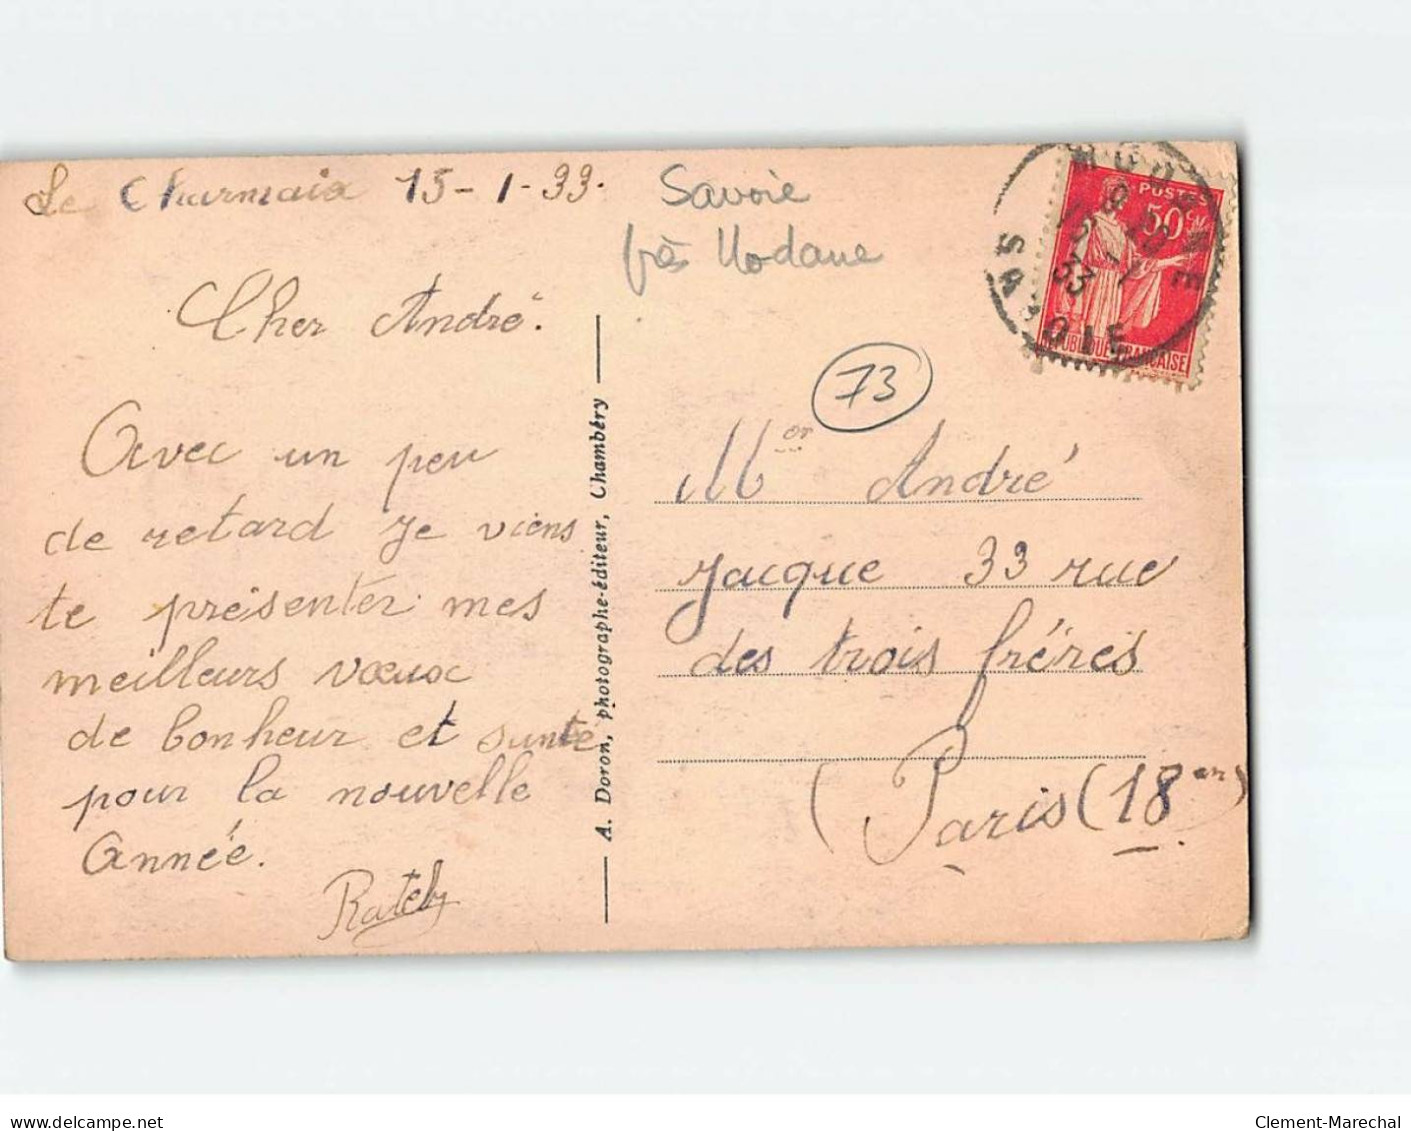 Le Charmaix 15-1-33.
Cher André.
Avec un peu
de retard je viens
te présenter mes
meilleurs vœux
de bonheur et santé
pour la nouvelle
Année.
A. Doron, photographe-éditeur, Chambéry
Savoie
près Modane
73
POSTES
50c
REPUBLIQUE FRANÇAISE
MODANE
15 -1
33
SAVOIE
Mr André
Jacque 33 rue
des trois fréres
(Paris (18er)
delcampe.net
Clement-Marechal